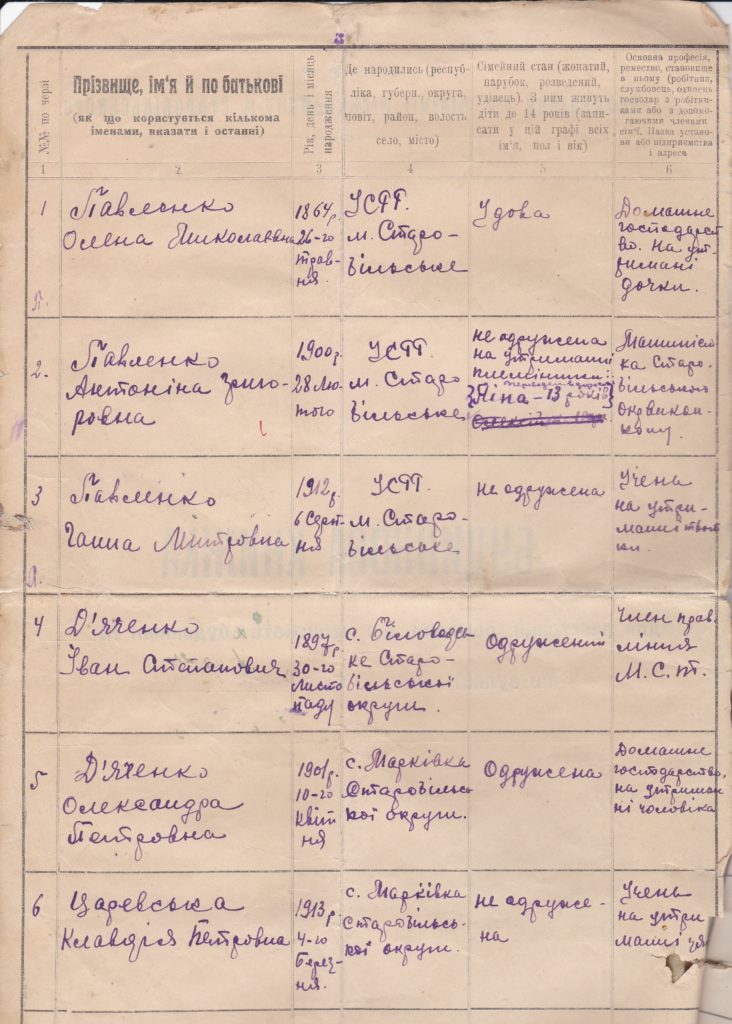 №№ по черзі
Прізвище, ім'я й по батькові
(як що користується кількома
іменами, вказати і останні)
Рік, день і місяць
народження
Де народились (респуб-
ліка, губерн, округа,
повіт, район, волость
село, місто)
Сімейний стан (жонатий,
парубок, розведений,
удівець). З ним живуть
діти до 14 років (запи-
сати у цій графі всіх
ім'я, пол і вік)
Основна професія,
ремество, становище
в ньому (робітник,
службовець, одинець
господар з робітни-
ками або з допома-
гаючими членами
сім'ї, Назва устано-
ви або підприємства
і адреса
1
2
3
4
5
6
1
Павленко
Олена Миколаївна
1864 р.
26-го
трав-
ня.
УСРР.
м. Старо-
більське
Удова
Домашнє
господарст
во. На ут-
римані
дочки.
2.
Павленко
Антоніна Григо-
ровна
1900 р.
28 Лю-
того
УСРР.
м. Старо
більське
не одружена
на утриманні
племінники:
Ніна - 13 років
Машиніст
ка Старо-
більського
окрвикон-
кому.
3
Павленко
Ганна Митровна
1912 р.
6 Серп-
ня
УСРР.
м. Старо-
більське
не одружена
Учена
на утри-
манні тьот
ки.
4
Д'яченко
Іван Степанович
1897 р.
30-го
Листо
паду
с. Біловодсь
ке Старо-
більської
округи.
Одружений
Член прав
ління
М.С.Т.
5
Д'яченко
Олександра
Петровна
1901 р.
10-го
Квіт
ня
с. Марківка
Старобільсь
кої округи.
Одружена
Домашнє
господарство,
на утриман
ні чоловіка
6
Царевська
Клавдія Петровна
1913 р.
4-го
Берез-
ня.
с. Марківка
Старобільсь-
кої округи.
не одруже-
на
Учена
на утри
манні